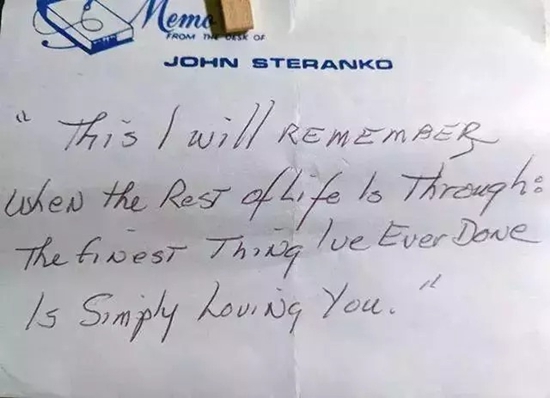 Memo
FROM THE DESK OF
JOHN STERANKO
"This I will REMEMBER
when the Rest of Life Is Through:
The finest Thing I've Ever Done
Is Simply Loving You."